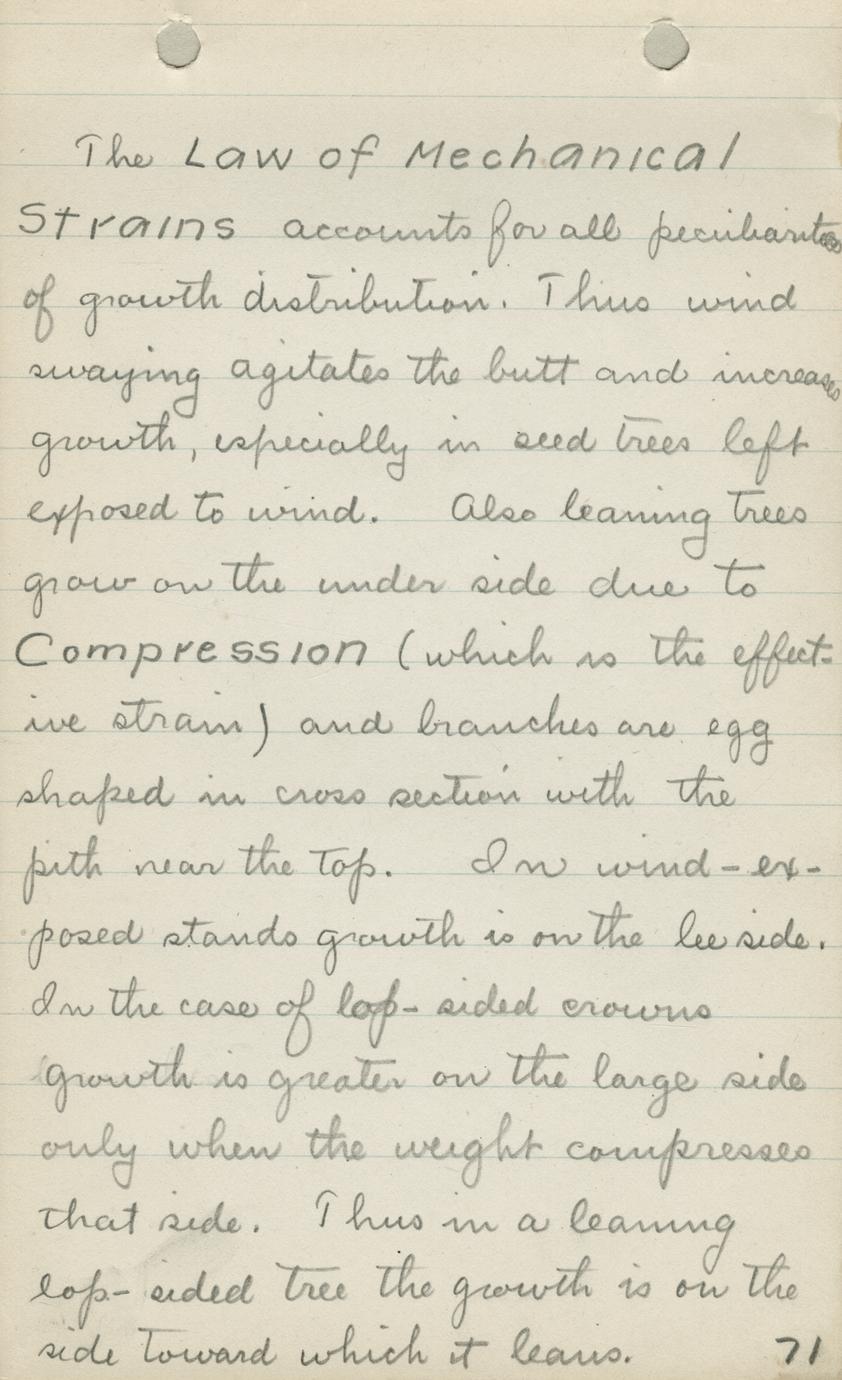 The Law of Mechanical
Strains accounts for all peculiarities
of growth distribution. Thus wind
swaying agitates the butt and increases
growth, especially in seed trees left
exposed to wind. Also leaning trees
grow on the under side due to
Compression (which is the effect-
ive strain) and branches are egg
shaped in cross section with the
pith near the top. In wind-ex-
posed stands growth is on the lee side.
In the case of lop-sided crowns
growth is greater on the large side
only when the weight compresses
that side. Thus in a leaning
lop-sided tree the growth is on the
side toward which it leans. 71